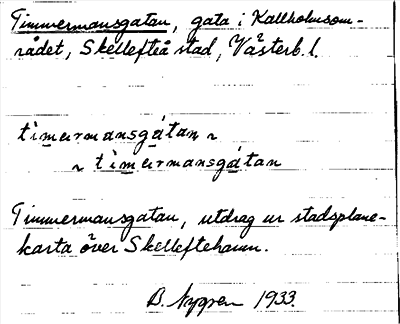 Timmermansgatan, gata i Kallholmsom-
rådet, Skellefteå stad, Västerb. l.
timərmansgátan ~
~ timərmansgátan
Timmermansgatan, utdrag ur stadsplane-
karta över Skelleftehamn.
B. Nygren 1933.